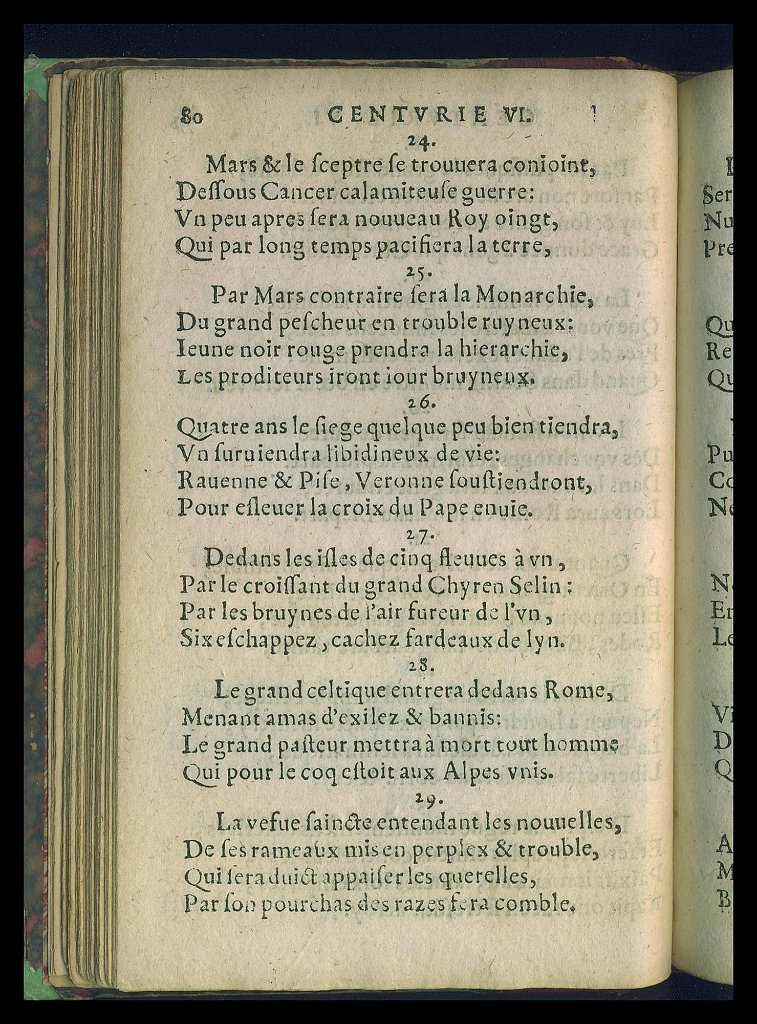 80 CENTVRIE VI.
24.
Mars & le ſceptre ſe trouuera conioint,
Deſſous Cancer calamiteuſe guerre:
Vn peu apres ſera nouueau Roy oingt,
Qui par long temps pacifiera la terre,
25.
Par Mars contraire ſera la Monarchie,
Du grand peſcheur en trouble ruyneux:
Ieune noir rouge prendra la hierarchie,
Les proditeurs iront iour bruyneux.
26.
Quatre ans le ſiege quelque peu bien tiendra,
Vn ſuruiendra libidineux de vie:
Rauenne & Piſe, Veronne ſouſtiendront,
Pour eſleuer la croix du Pape enuie.
27.
Dedans les iſles de cinq fleuues à vn,
Par le croiſſant du grand Chyren Selin:
Par les bruynes de l'air fureur de l'vn,
Six eſchappez, cachez fardeaux de lyn.
28.
Le grand celtique entrera dedans Rome,
Menant amas d'exilez & bannis:
Le grand paſteur mettra à mort tout homme
Qui pour le coq eſtoit aux Alpes vnis.
29.
La vefue ſaincte entendant les nouuelles,
De ſes rameaux mis en perplex & trouble,
Qui ſera duict appaiſer les querelles,
Par ſon pourchas des razes ſera comble.
Ser
Nu
Pre
Qu
Re
Qu
Pu
Co
Ne
N
En
Le
Vi
D
Q
A
M
B